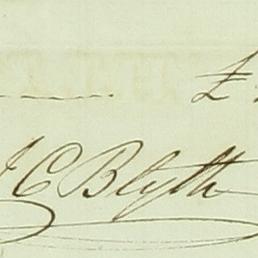 £
C Blyth